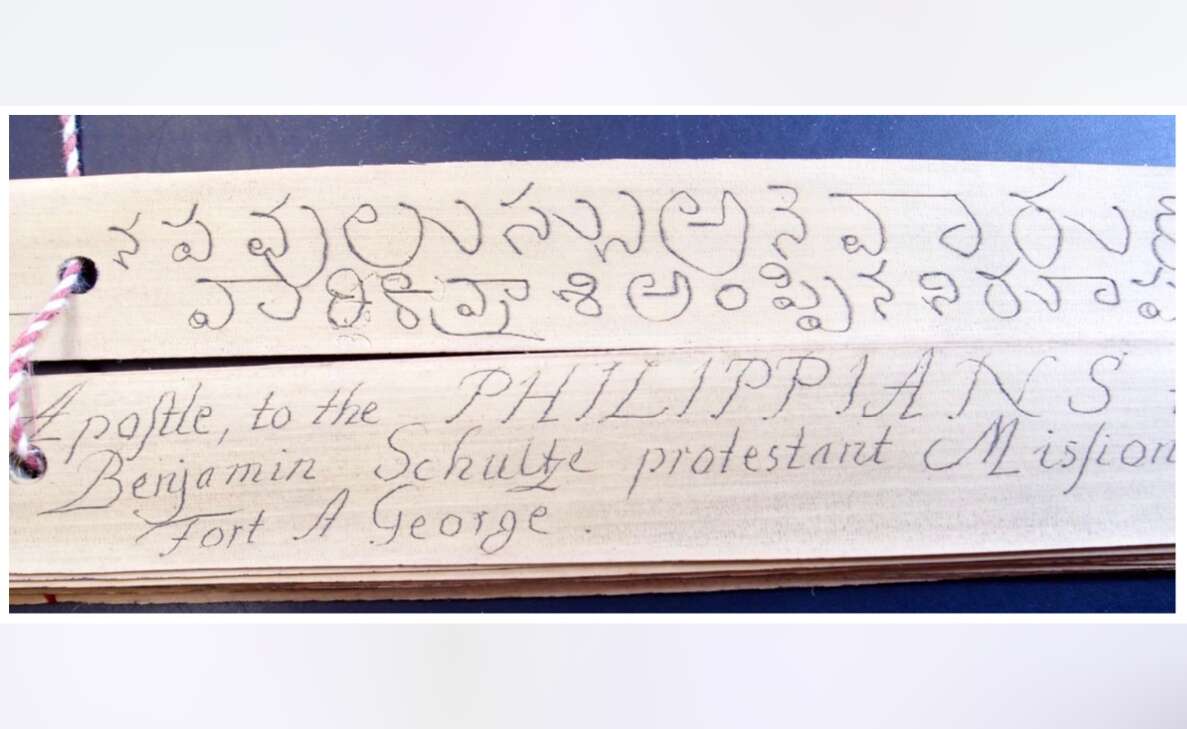 న పవులుస్సు అనె వారు
వ్రాశి అంప్పిన
Apoſtle, to the PHILIPPIANS
Benjamin Schultze protestant Miſsion
Fort George .